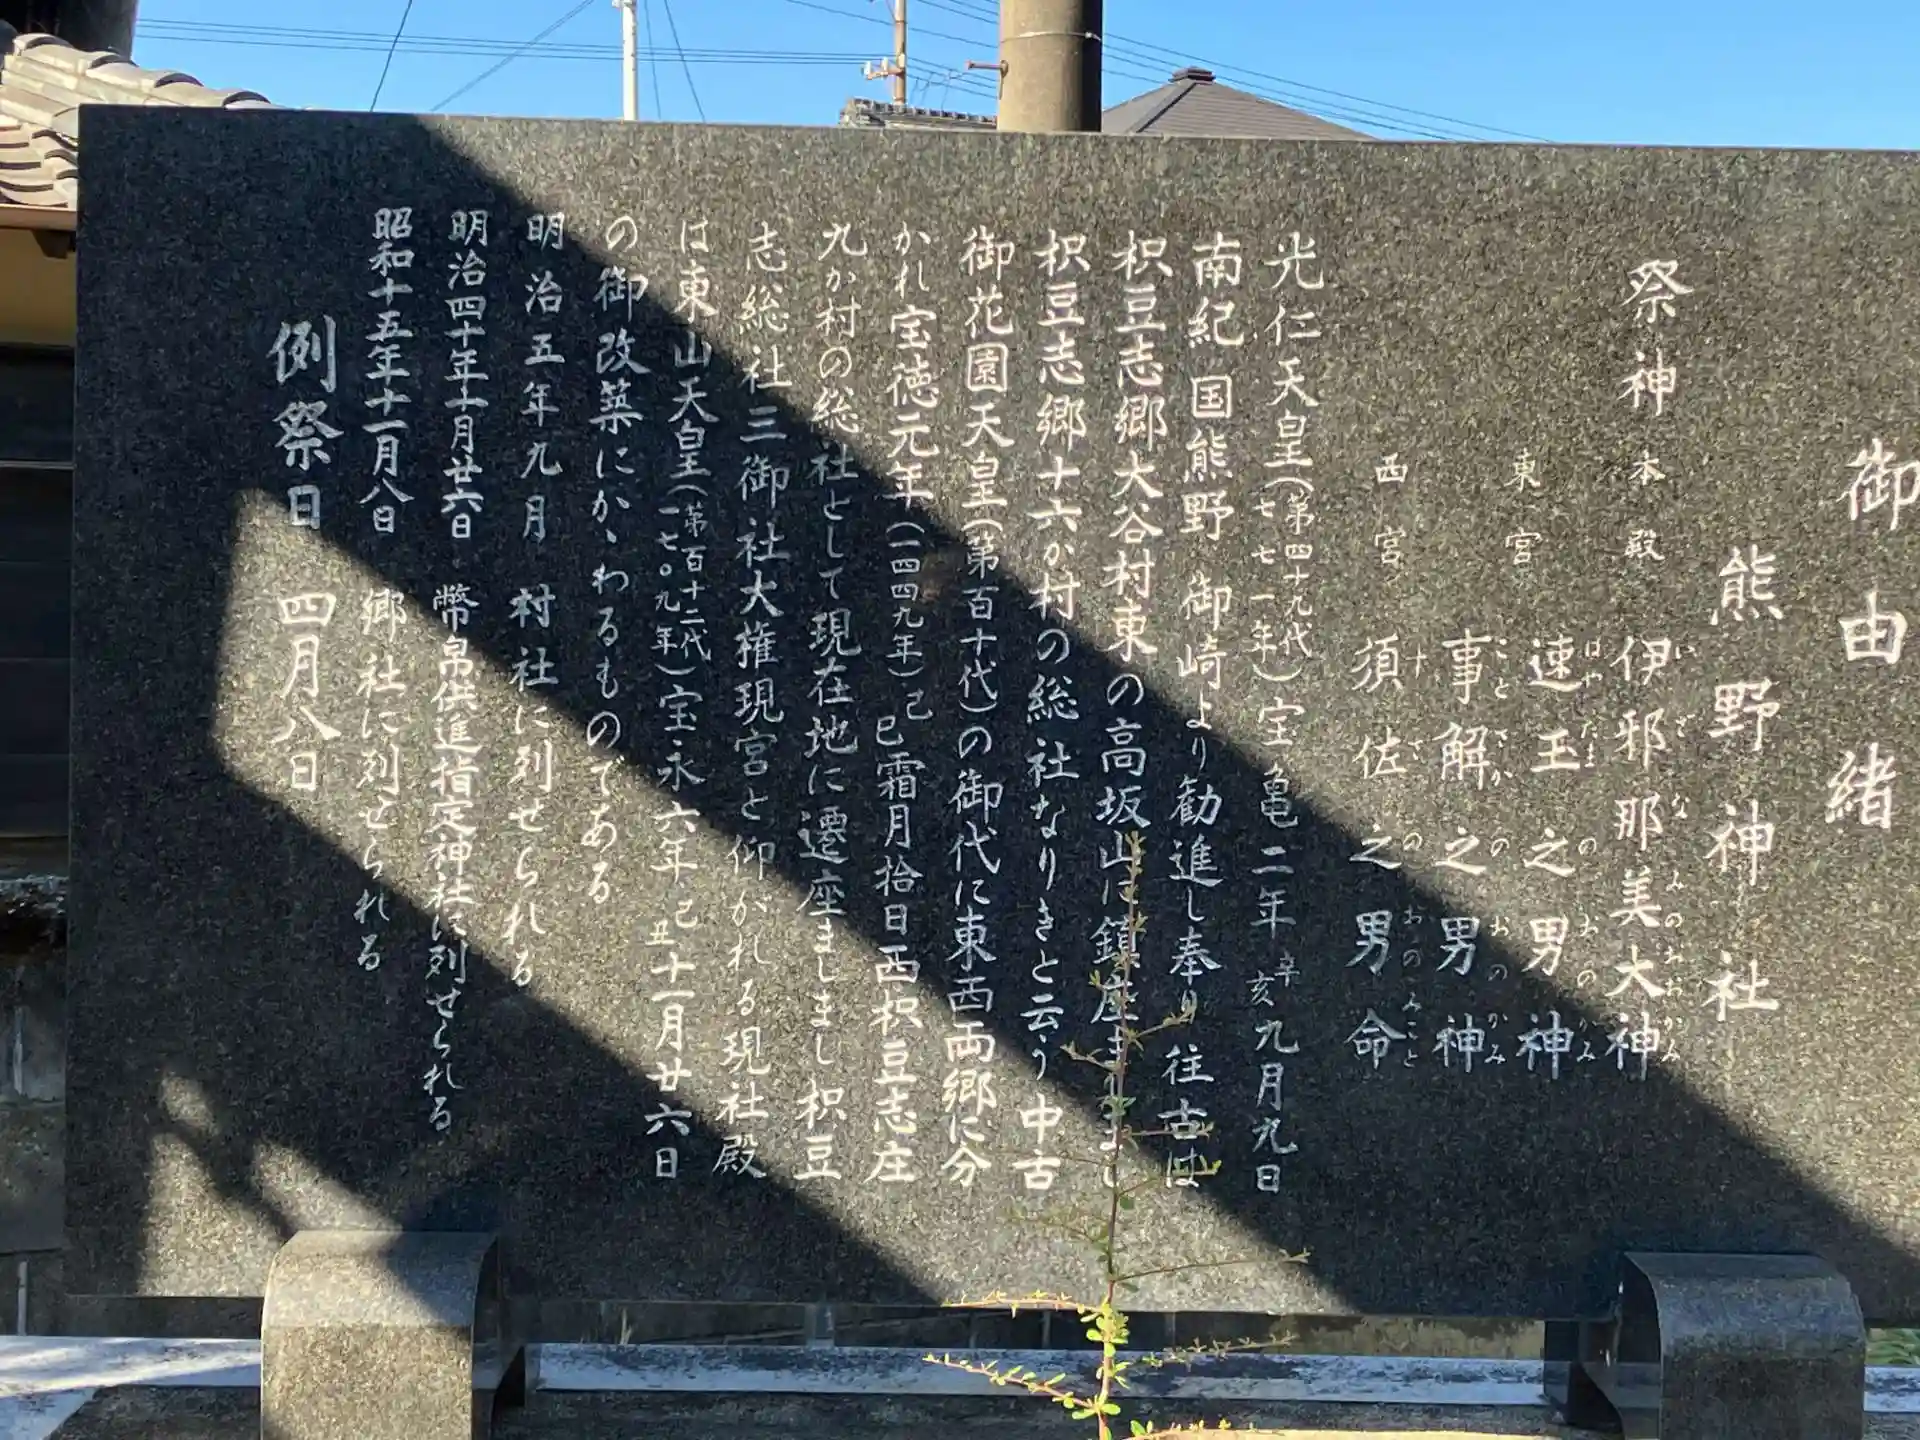 御由緒
熊野神社
祭神 本殿 伊邪那美大神
いざなみのおおかみ
東宮 速玉之男神
はやだまのおのかみ
事解之男神
ことさかのおのかみ
西宮 須佐之男命
すさのおのみこと
光仁天皇(第四十九代)(七七一年)宝亀二年辛亥九月九日
南紀国熊野御崎より勧進し奉り往古は
枳豆志郷大谷村東の高坂山に鎮座ましまし
枳豆志郷十六か村の総社なりきと云う 中古
御花園天皇(第百十代)の御代に東西両郷に分
かれ宝徳元年(一四四九年)己巳霜月拾日西枳豆志庄
九か村の総社として現在地に遷座ましまし枳豆
志総社三御社大権現宮と仰がれる現社殿
は東山天皇(第百十二代)(一七〇九年)宝永六年己丑十一月廿六日
の御改築にかゝわるものである
明治五年九月 村社に列せられる
明治四十年十月廿六日 幣帛供進指定神社に列せられる
昭和十五年十一月八日 郷社に列せられる
例祭日 四月八日